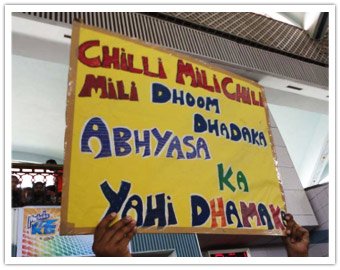 CHILLI MILI CHILLI
MILI DHOOM
DHADAKA
ABHYASA
KA
YAHI DHAMAKA